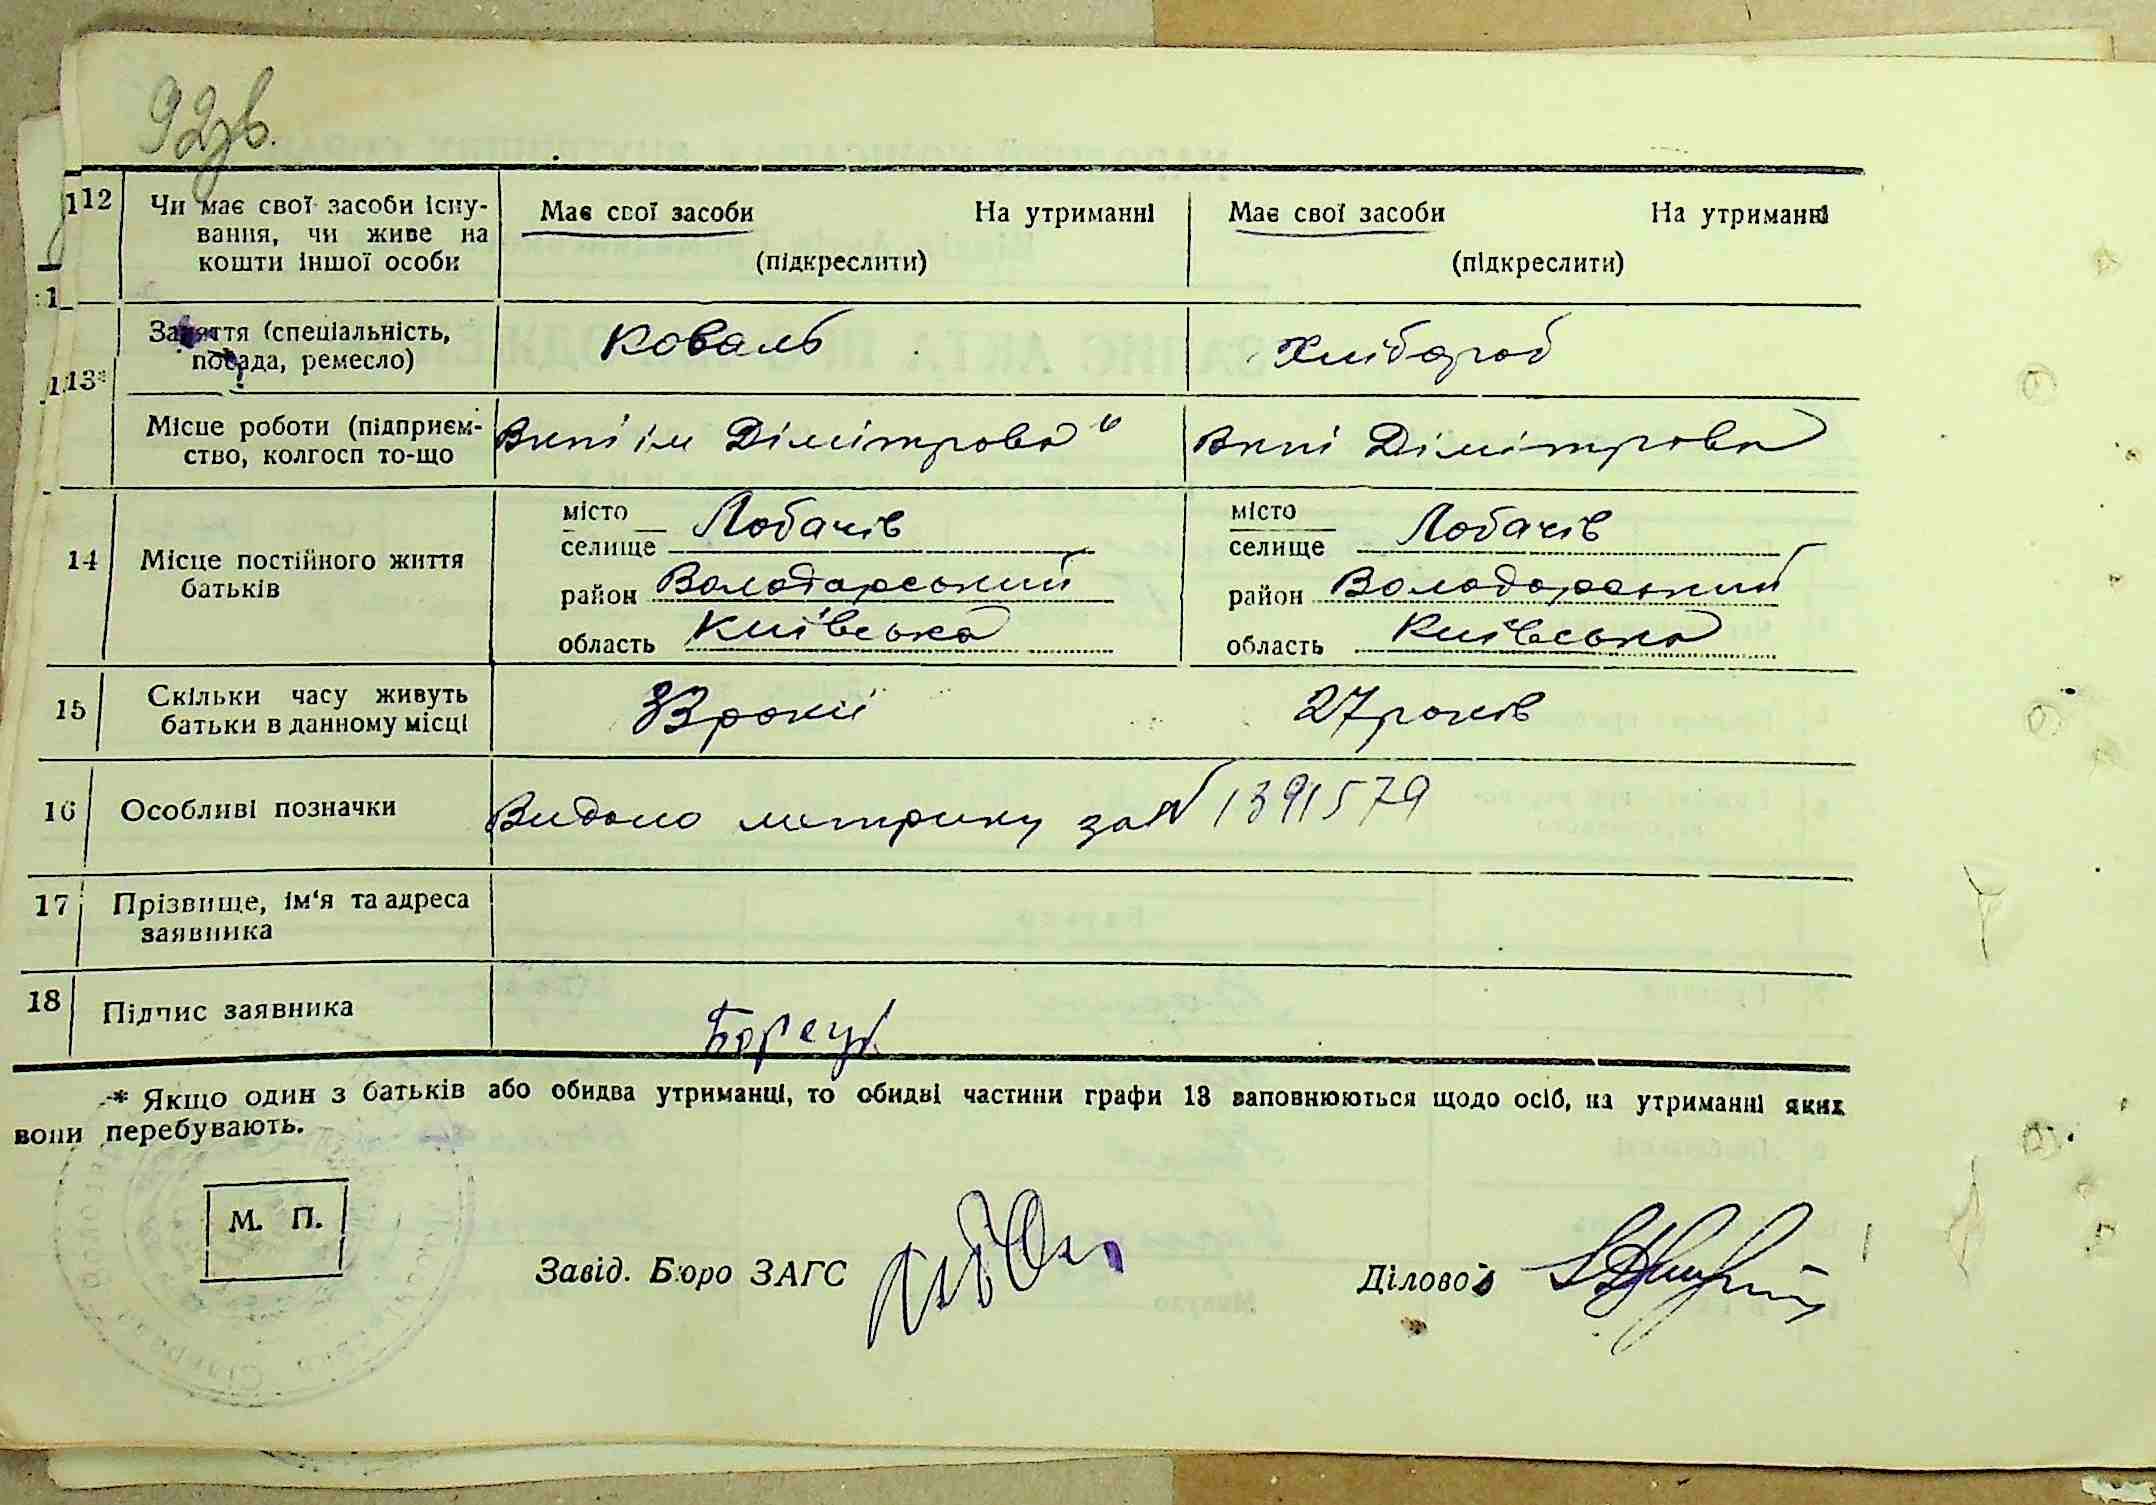 92зв.
12 Чи має свої засоби існу- Має свої засоби На утриманні Має свої засоби На утриманні
вання, чи живе на
кошти іншої особи (підкреслити) (підкреслити)
Заняття (спеціальність, Коваль Хлібороб
посада, ремесло)
13*
Місце роботи (підприєм- ім Дімітрова" Дімітрова
ство, колгосп то-що
14 Місце постійного життя батьків
місто
селище Лобачів
район Володарський
область Київська
місто
селище Лобачів
район Володарський
область Київська
15 Скільки часу живуть 33 роки 27 років
батьки в данному місці
16 Особливі позначки Видано метрику за № 1391579
17 Прізвище, ім'я та адреса
заявника
18 Підпис заявника
* Якщо один з батьків або обидва утриманці, то обидві частини графи 13 заповнюються щодо осіб, на утриманні яких
вони перебувають.
М. П.
Завід. Бюро ЗАГС Діловод